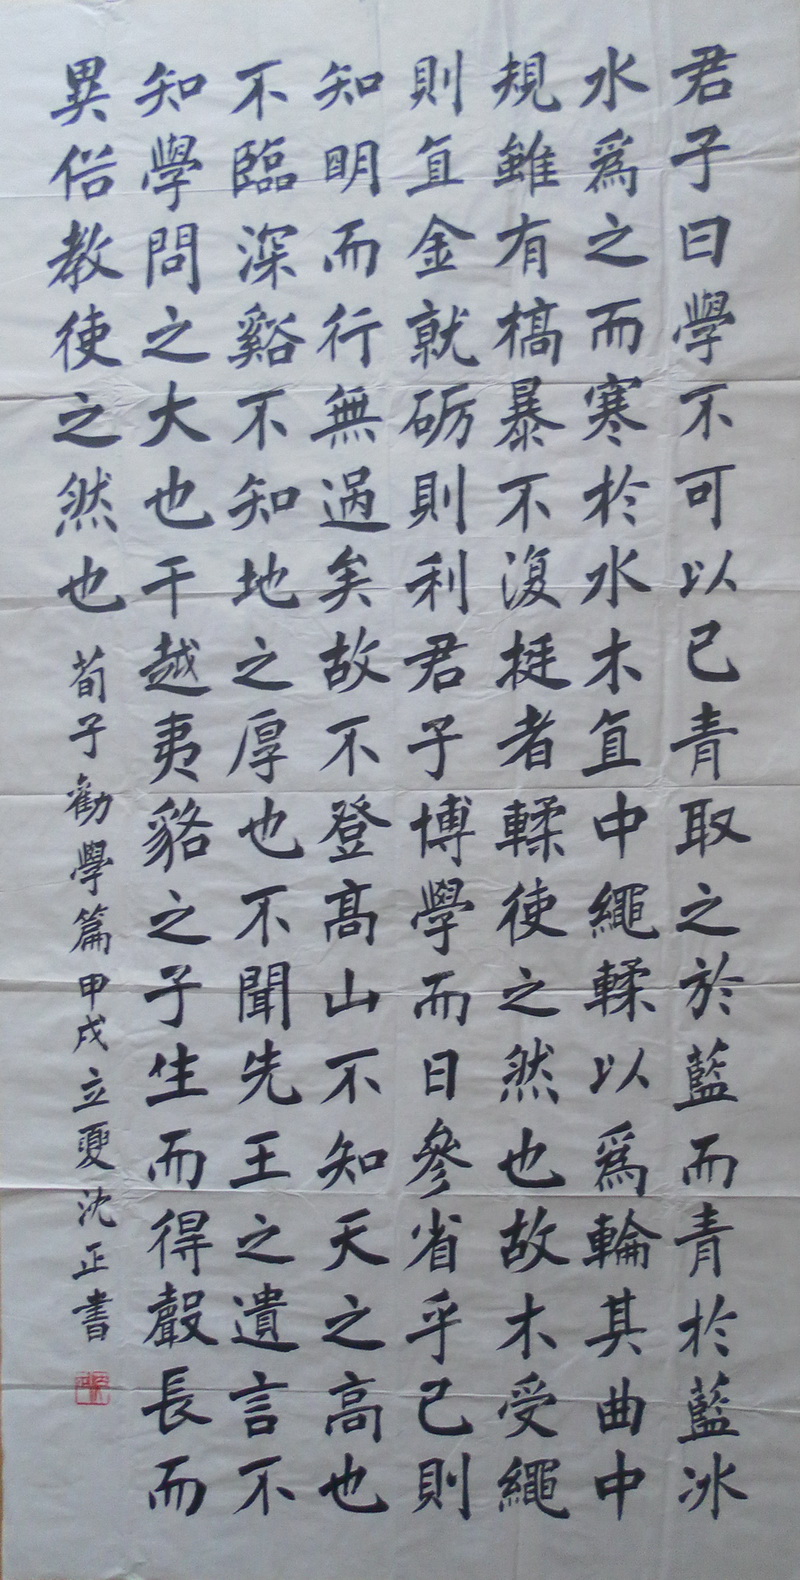 君子曰學不可以已青取之於藍而青於藍冰
水為之而寒於水木直中繩輮以為輪其曲中
規雖有槁暴不復挺者輮使之然也故木受繩
則直金就砺則利君子博學而日參省乎己則
知明而行無過矣故不登高山不知天之高也
不臨深谿不知地之厚也不聞先王之遺言不
知學問之大也干越夷貉之子生而得聲長而
異俗教使之然也
荀子勸學篇甲戌立夏沈正書